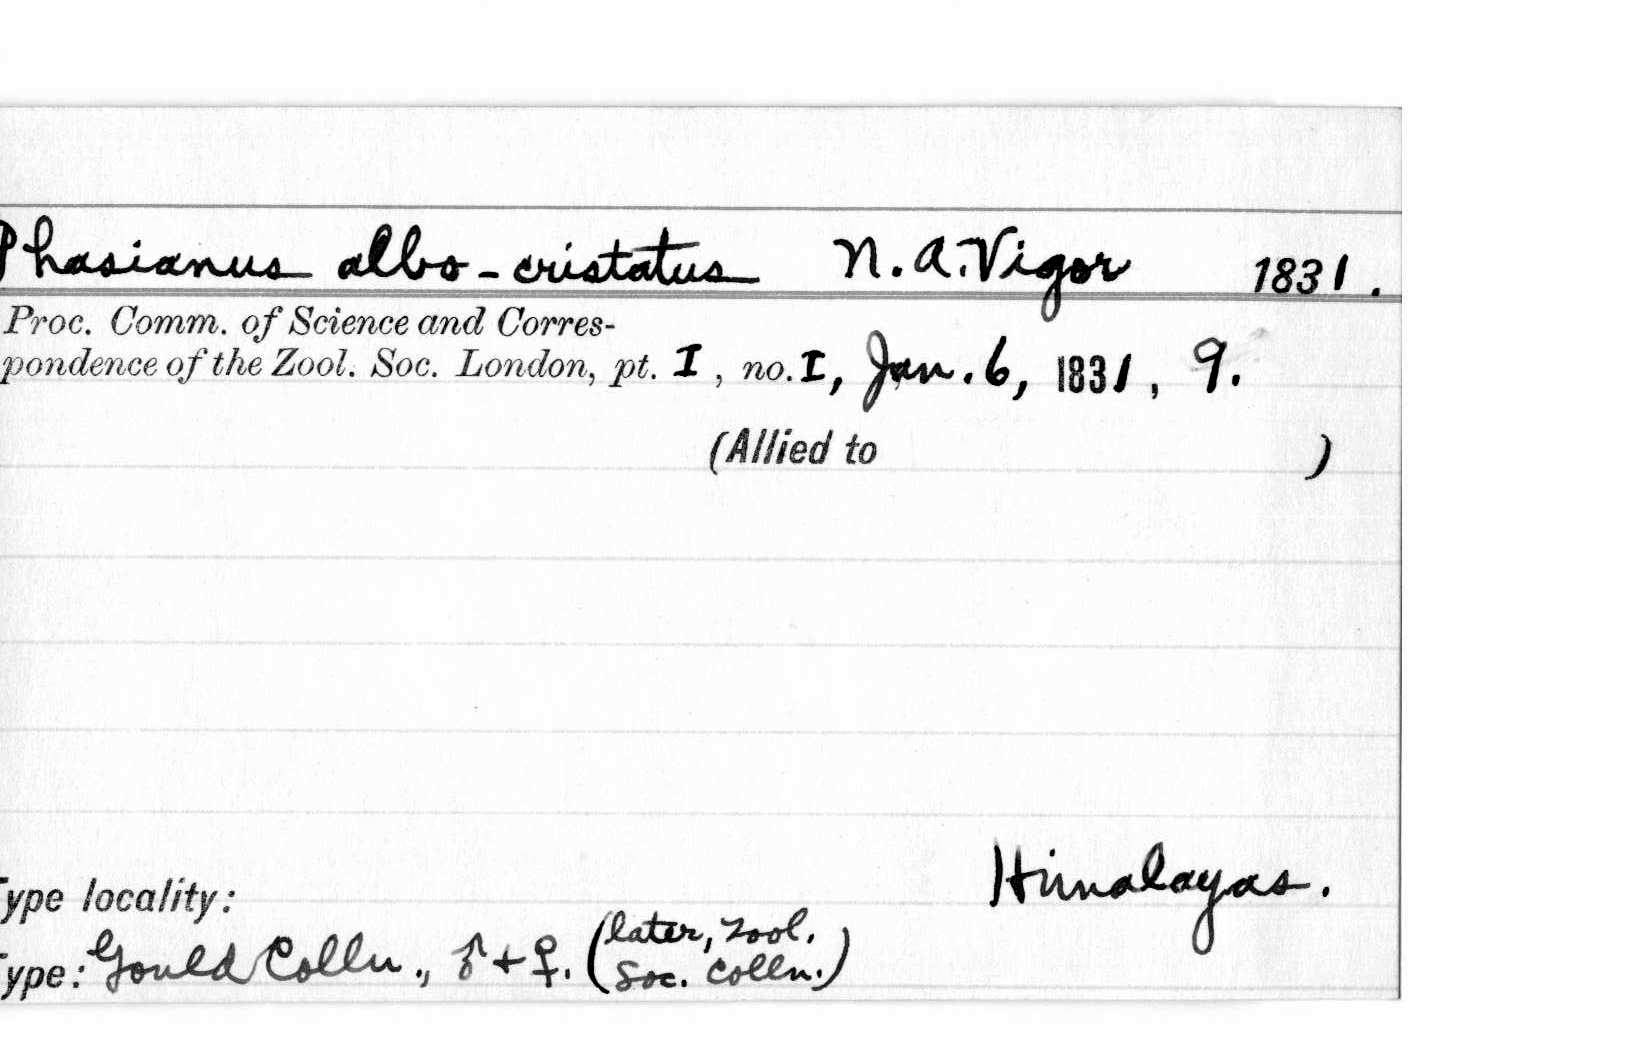 Phasianus albo-cristatus N. A. Vigor 1831.
Proc. Comm. of Science and Corres-
pondence of the Zool. Soc. London, pt. I, no. I, Jan. 6, 1831, 9.
(Allied to )
Himalayas.
Type locality:
Type: Gould Colln., ♂ + ♀. (later, Zool.
Soc. Colln.)